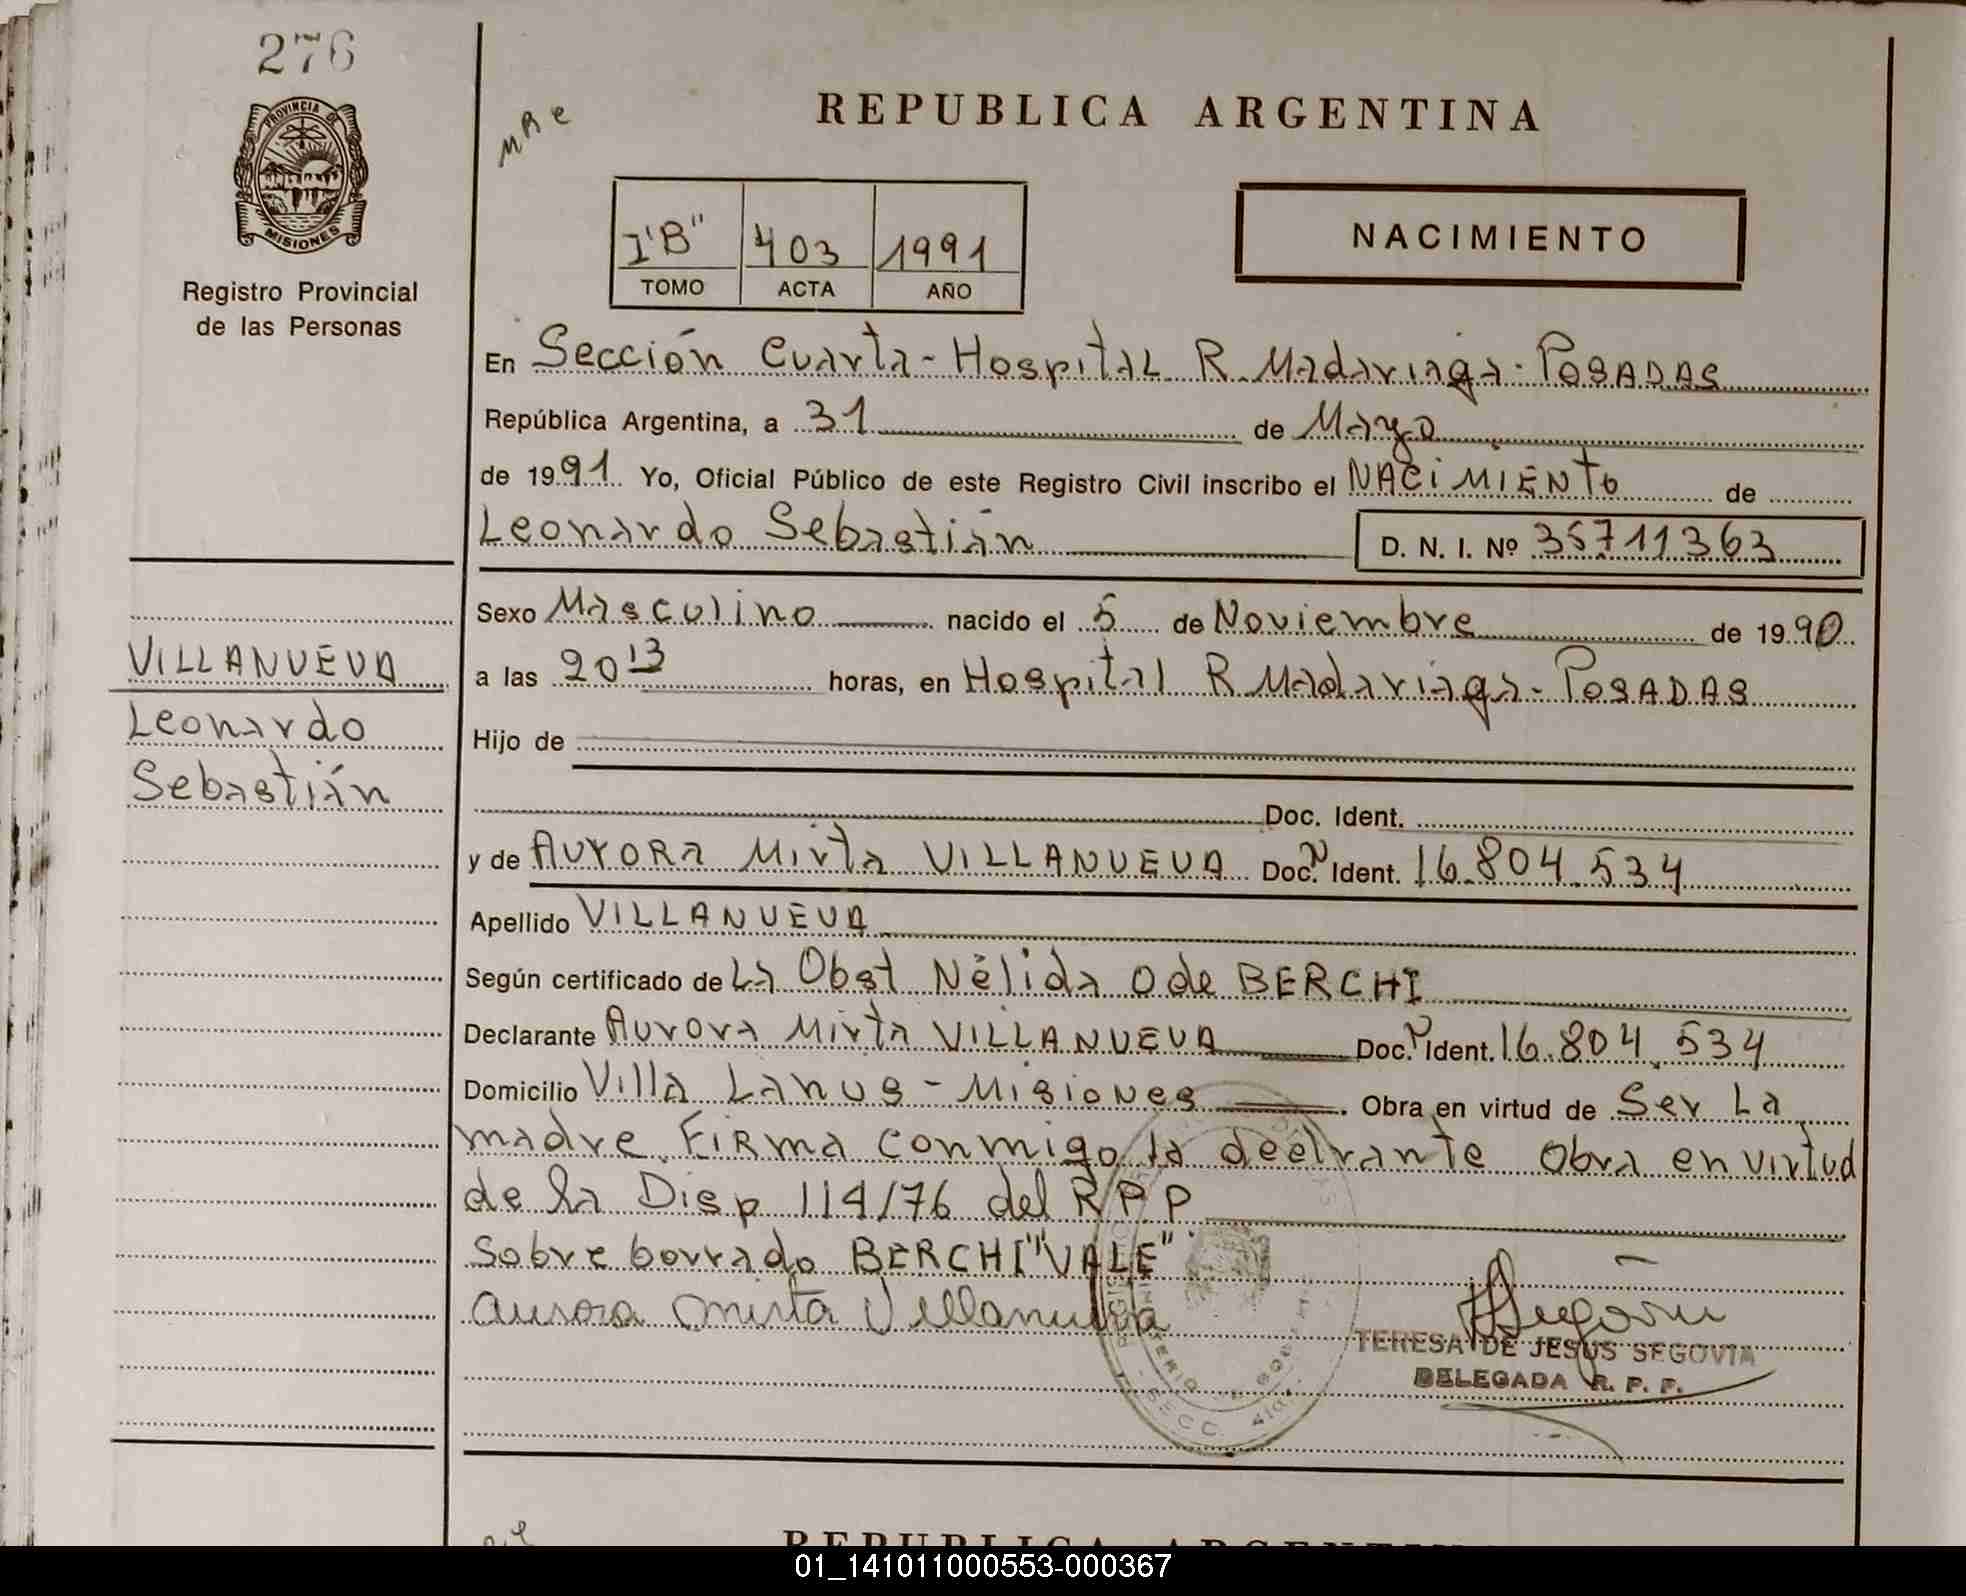 276
PROVINCIA DE
MISIONES
Registro Provincial
de las Personas
REPUBLICA ARGENTINA
I "B" 403 1991
TOMO ACTA AÑO
NACIMIENTO
En Sección Cuarta - Hospital R. Madariaga - POSADAS
República Argentina, a 31 de Mayo
de 1991. Yo, Oficial Público de este Registro Civil inscribo el NACIMIENTO de
Leonardo Sebastián D. N. I. Nº 35711363
Sexo Masculino nacido el 5 de Noviembre de 1990
a las 20 13 horas, en Hospital R Madariaga - POSADAS
Hijo de
Doc. Ident.
y de AURORA Mirta VILLANUEVA Doc. N Ident. 16.804.534
Apellido VILLANUEVA
Según certificado de La Obst Nélida O de BERCHI
Declarante Aurora Mirta VILLANUEVA Doc. N Ident. 16.804.534
Domicilio Villa Lanus - Misiones. Obra en virtud de Ser La
madre. Firma conmigo la declrante Obra en virtud
de la Disp 114/76 del R P P
Sobre borrado BERCHI "VALE"
Aurora Mirta Villanueva
TERESA DE JESUS SEGOVIA
DELEGADA R. P. P.
VILLANUEVA
Leonardo
Sebastián
REPUBLICA ARGENTINA
01_141011000553-000367